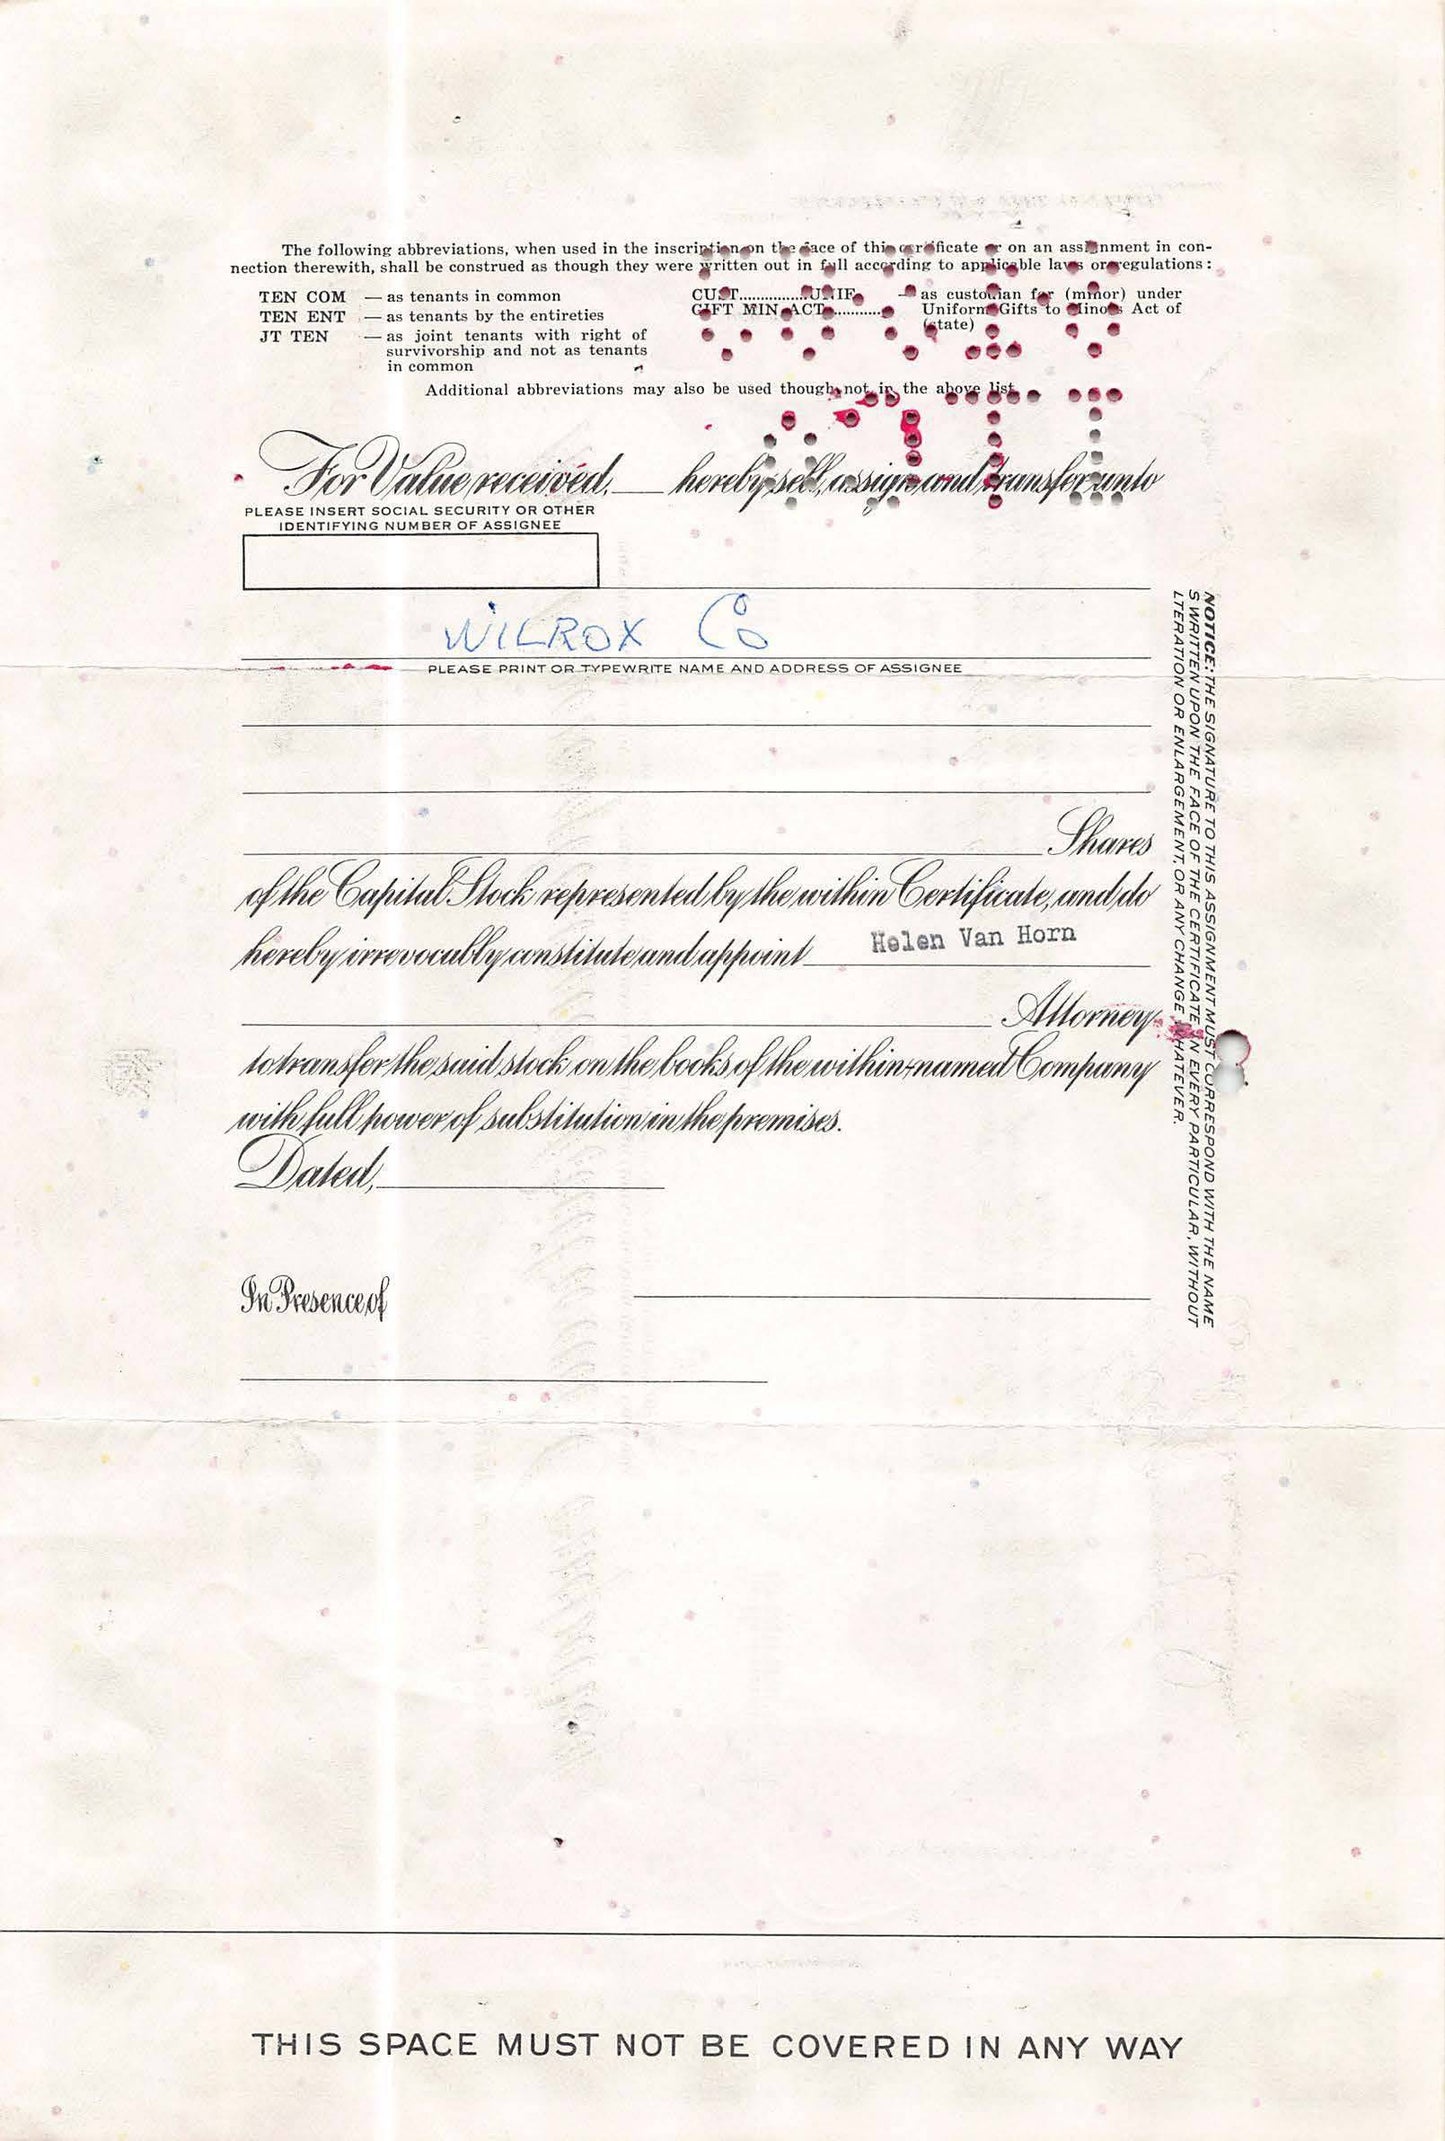 The following abbreviations, when used in the inscription on the face of this certificate or on an assignment in con-
nection therewith, shall be construed as though they were written out in full according to applicable laws or regulations:
TEN COM — as tenants in common
TEN ENT — as tenants by the entireties
JT TEN — as joint tenants with right of
survivorship and not as tenants
in common
CUST................UNIF. — as custodian for (minor) under
GIFT MIN ACT............. Uniform Gifts to Minors Act of
(state)
Additional abbreviations may also be used though not in the above list.
For Value received, ____ hereby sell, assign and transfer unto
PLEASE INSERT SOCIAL SECURITY OR OTHER
IDENTIFYING NUMBER OF ASSIGNEE
WILROX Co
PLEASE PRINT OR TYPEWRITE NAME AND ADDRESS OF ASSIGNEE
Shares
of the Capital Stock represented by the within Certificate, and do
hereby irrevocably constitute and appoint Helen Van Horn
Attorney
to transfer the said stock on the books of the within-named Company
with full power of substitution in the premises.
Dated,
In Presence of
NOTICE: THE SIGNATURE TO THIS ASSIGNMENT MUST CORRESPOND WITH THE NAME
S WRITTEN UPON THE FACE OF THE CERTIFICATE IN EVERY PARTICULAR, WITHOUT
LTERATION OR ENLARGEMENT, OR ANY CHANGE WHATEVER.
THIS SPACE MUST NOT BE COVERED IN ANY WAY